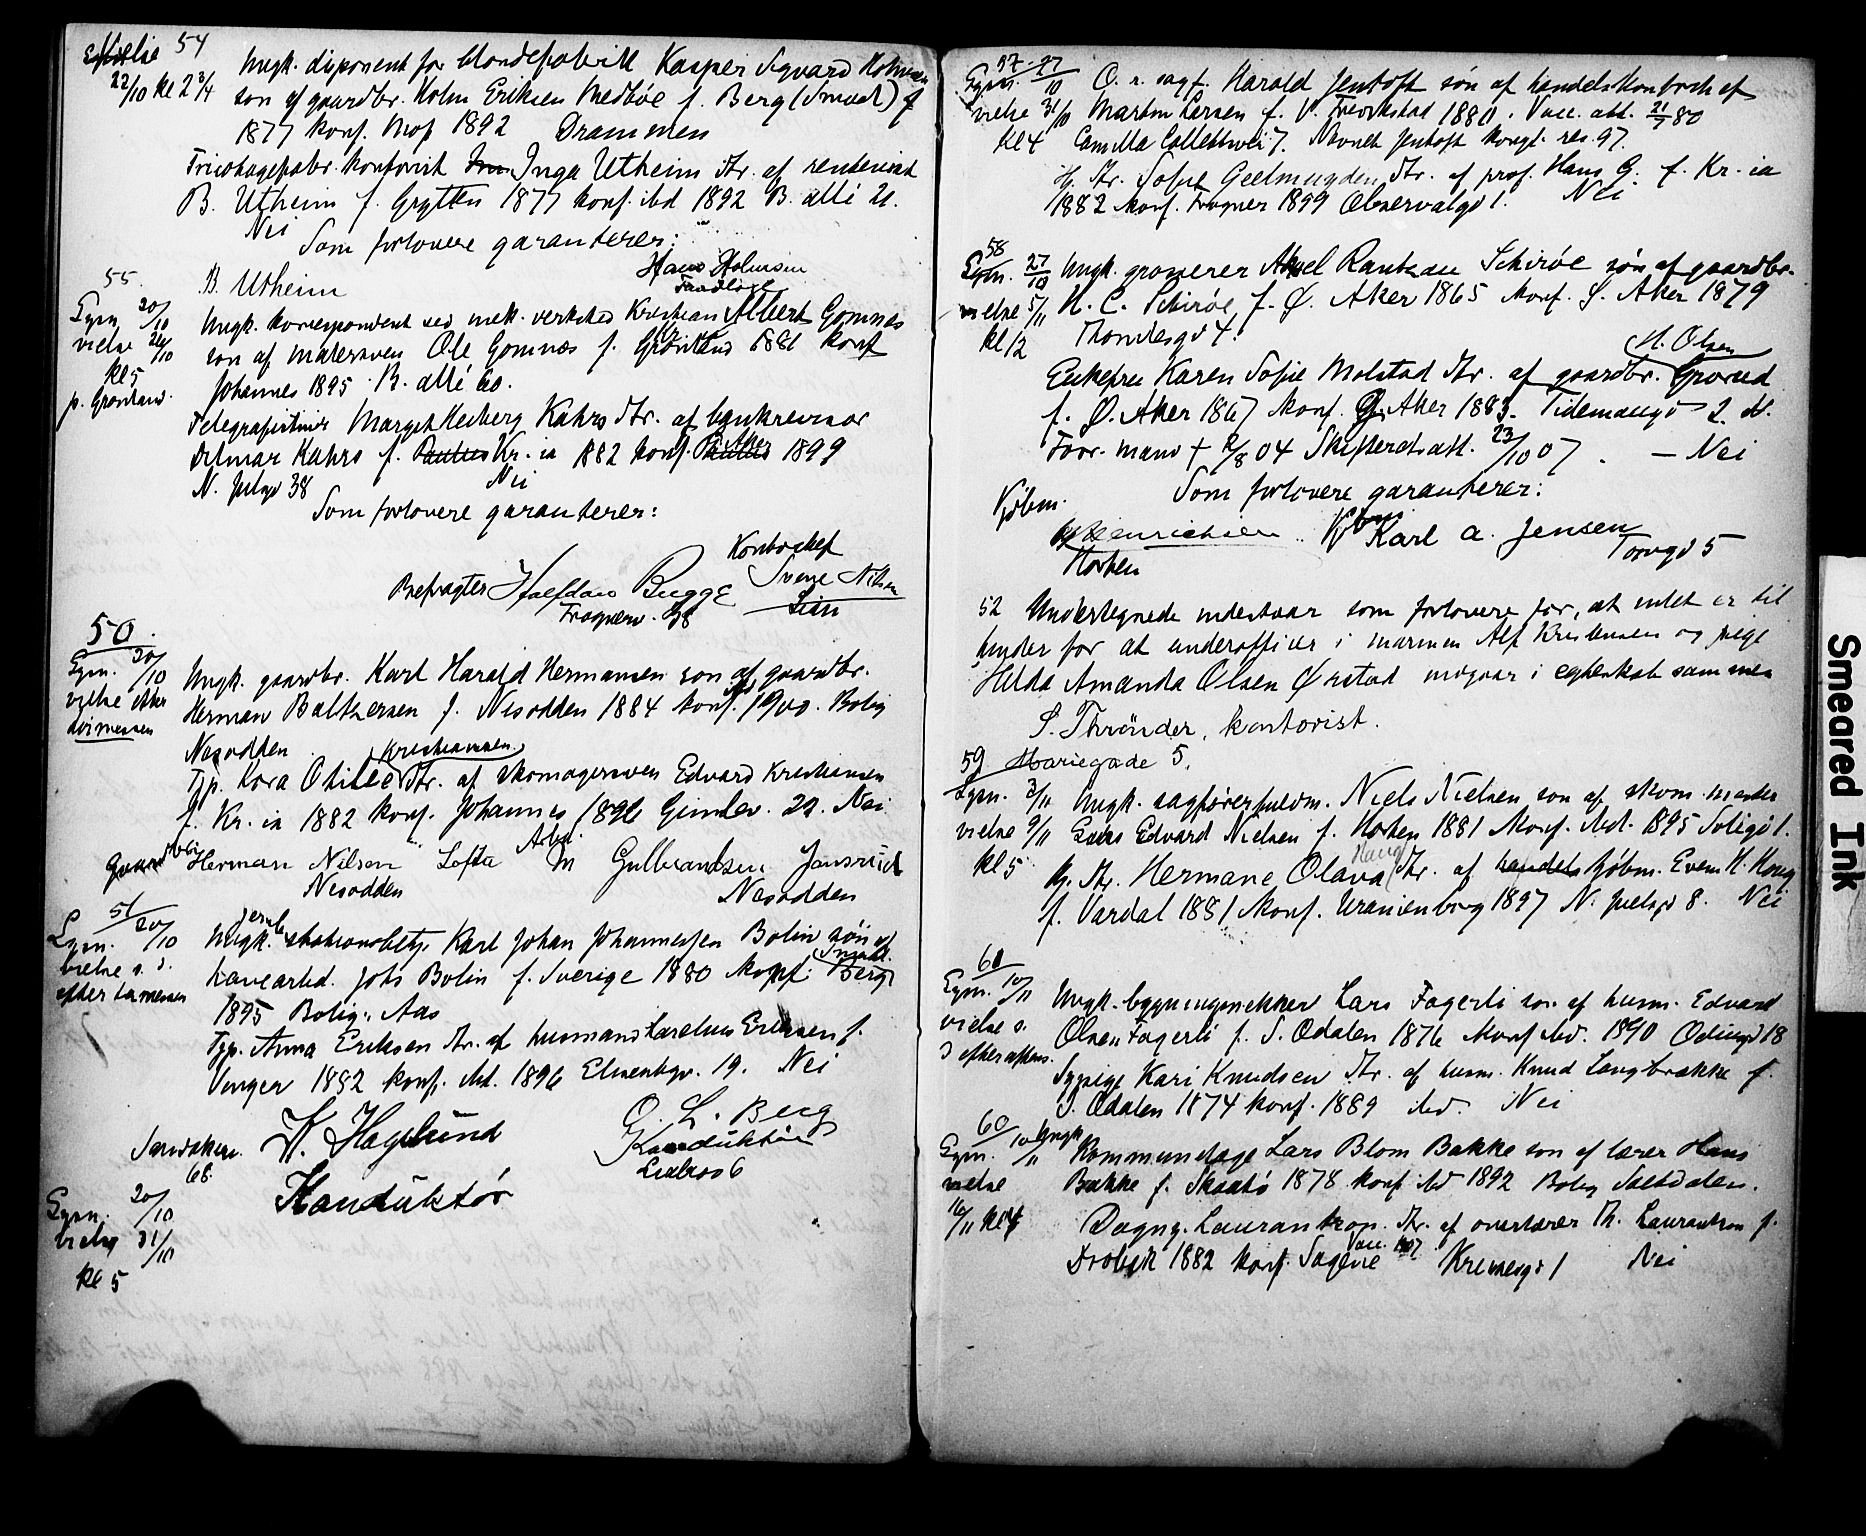 54
22/10 kl 2 3/4
Ungk. disponent for blondefabrik Kasper Sigvard Holmsen
søn af gaardbr. Holm Eriksen Medbøe f. Berg (Smaal) f
1877 konf. Mos 1892 Drammen
Tricotagefabr. kontorist Inga Utheim dtr. af rentenist
B. Utheim f. Grytten 1877 konf. ibd 1892 B. allé 21.
Nei
Som forlovere garanterer:
B. Utheim
Hans Holmsen
Tandlæge
55
Lysn. 20/10
vielse 26/10
kl 5
p. Grønland.
Ungk. korrespondent ved mek. verksted Kristian Albert Gomnæs
søn af malersven Ole Gomnæs f. Grønland 1881 konf
Johannes 1895 B. allé 60.
Telegrafistinde Margit Herberg Kahrs dtr. af bankrevisor
Ditmar Kahrs f. Paulus Kr. ia 1882 konf. Paulus V. Aker 1899
N. Juelsgd 38
Nei
Som forlovere garanterer:
Befragter Halfdan Bugge
Frognerv. 38
Kontorchef
Sverre Nilsen
Lian
50
Lysn. 20/10
vielse efter
høimessen
Ungk. gaardbr. Karl Harald Hermansen søn af gaardbr.
Herman Baltzersen f. Nesodden 1884 konf. ibd 1900. Bolig
Nesodden
Tjp. Kora Otilie (Kristiansen) dtr. af skomagersven Edvard Kristiansen
f. Kr. ia 1882 konf. Johannes 1896 Gimlev. 22. Nei
Gaardbr. Herman Nilsen Tofta
Nesodden
Arb. M Gulbrandsen Jonsrud
Nesodden
51
Lysn. 20/10
vielse s. d.
efter høimessen
Ungk. jernb. stationsbetj. Karl Johan Johannesen Bolin søn af
havearbd. Johs Bolin f. Sverige 1880 konf. Berg (Smaal.)
1895 Bolig: Aas
Tjp. Anna Eriksen dtr. af husmand Karelius Eriksen f.
Vinger 1882 konf. ibd. 1896 Elisenbgv. 19. Nei
Sandakerv.
68.
K. Hagelund
Kondüktör
O. L. Berg
Konduktør
Lysn. 20/10
vielse 31/10
kl 5
57
Lysn. 27/10
vielse 31/10
kl 4
O. r. sagf. Harald Jentoft søn af handelskontorchef
Martin Larsen f. V. Fredrikstad 1880. Vacc. att. 21/7 80
Camilla Collettsvei 7. Navnet Jentoft kongl. res. 97.
Hj. dtr. Sofie Geelmuyden, dtr. af prof. Hans G. f. Kr. ia
1882 konf. Frogner 1899 Observatgd 1. Nei
58
Lysn. 27/10
vielse 5/11
kl 12
Ungk. groserer Aksel Rantzau Schirøe søn af gaardbr.
H. C. Schirøe f. Ø. Aker 1865 konf. Ø. Aker 1879
Thomlesgd 4.
Enkefru Karen Sofie Molstad dtr. af gaardbr. H. Olsen Grorud
f. Ø. Aker 1867 konf. Ø. Aker 1883. Tidemansgd 2. N.
Forr. mand † 2/8 04 Skifteretsatt. 23/10 07. — Nei
Som forlovere garanterer:
Kjøbm.
Henrichsen
Horten
Kjøbm Karl A. Jensen
Torvgd 5
52 Undertegnede indestaar som forlovere for, at intet er til
hinder for at underofficer i marinen Alf Kristensen og pige
Hilda Amanda Olsen Ørstad indgaar i egteskab sammen
S. Thrönder, kontorist.
59 Mariegade 5.
Lysn. 3/11
vielse 9/11
kl 5
Ungk. sagførerfuldm. Niels Nielsen søn af skom. mester
Lars Edvard Nielsen f. Horten 1881 konf. ibd. 1895 Soligd 1.
Hj. dtr. Hermane Olava (Haug) dtr. af handels kjøbm. Even H. Haug
f. Vardal 1881 konf. Uranienborg 1897 N. Juelsgd 8. Nei
61
Lysn. 10/11
vielse s.
d efter aftens.
Ungk. bygningssnekker Lars Fagerli søn af husm. Edvard
Olsen Fagerli f. S. Odalen 1876 konf. ibd. 1890 Odinsgd 18
Sypige Kari Knudsen dtr. af husm. Knud Langbrække f.
S. Odalen 1874 konf. 1889 ibd. Nei
60
Lysn. 10/11
vielse
16/11 kl 4
Ungk. kommunelæge Lars Blom Bakke søn af lærer Hans
Bakke f. Skaatø 1878 konf. ibd 1892 Bolig Saltdalen.
Dagny Laurantzon dtr. af overlærer Th. Laurantzon f.
Drøbak 1882 konf. Sagene Vacc. 1897 Kruesegd 1 Nei
Smeared Ink